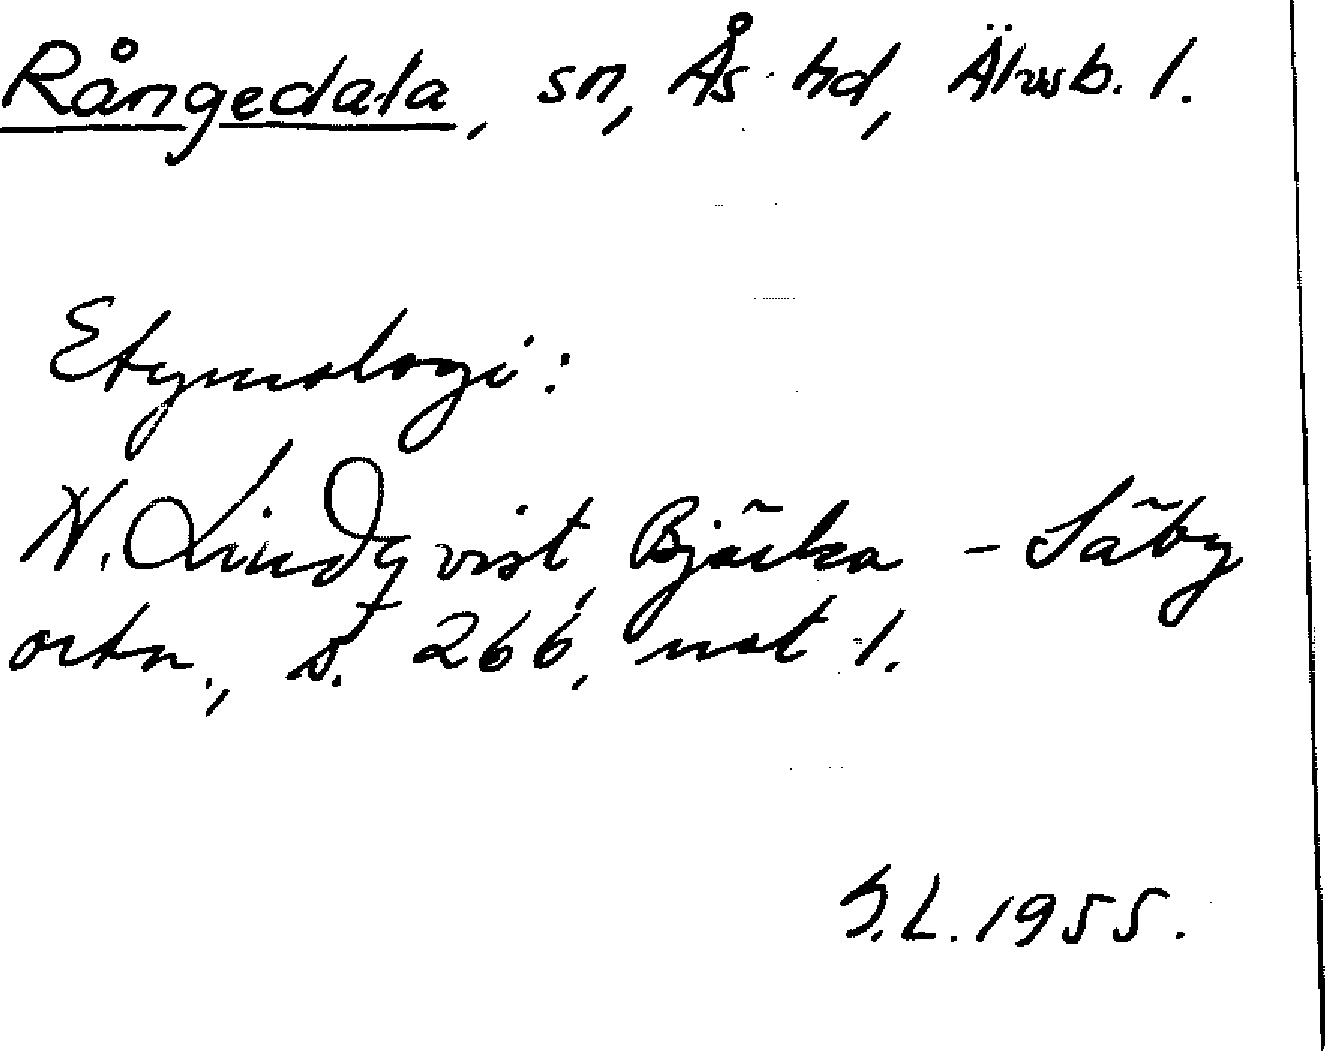 Rångedala, sn, Ås hd, Älvsb. l.
Etymologi:
N. Lindqvist, Bjärka - Säby
ortn., s. 266, not 1.
S.L. 1955.